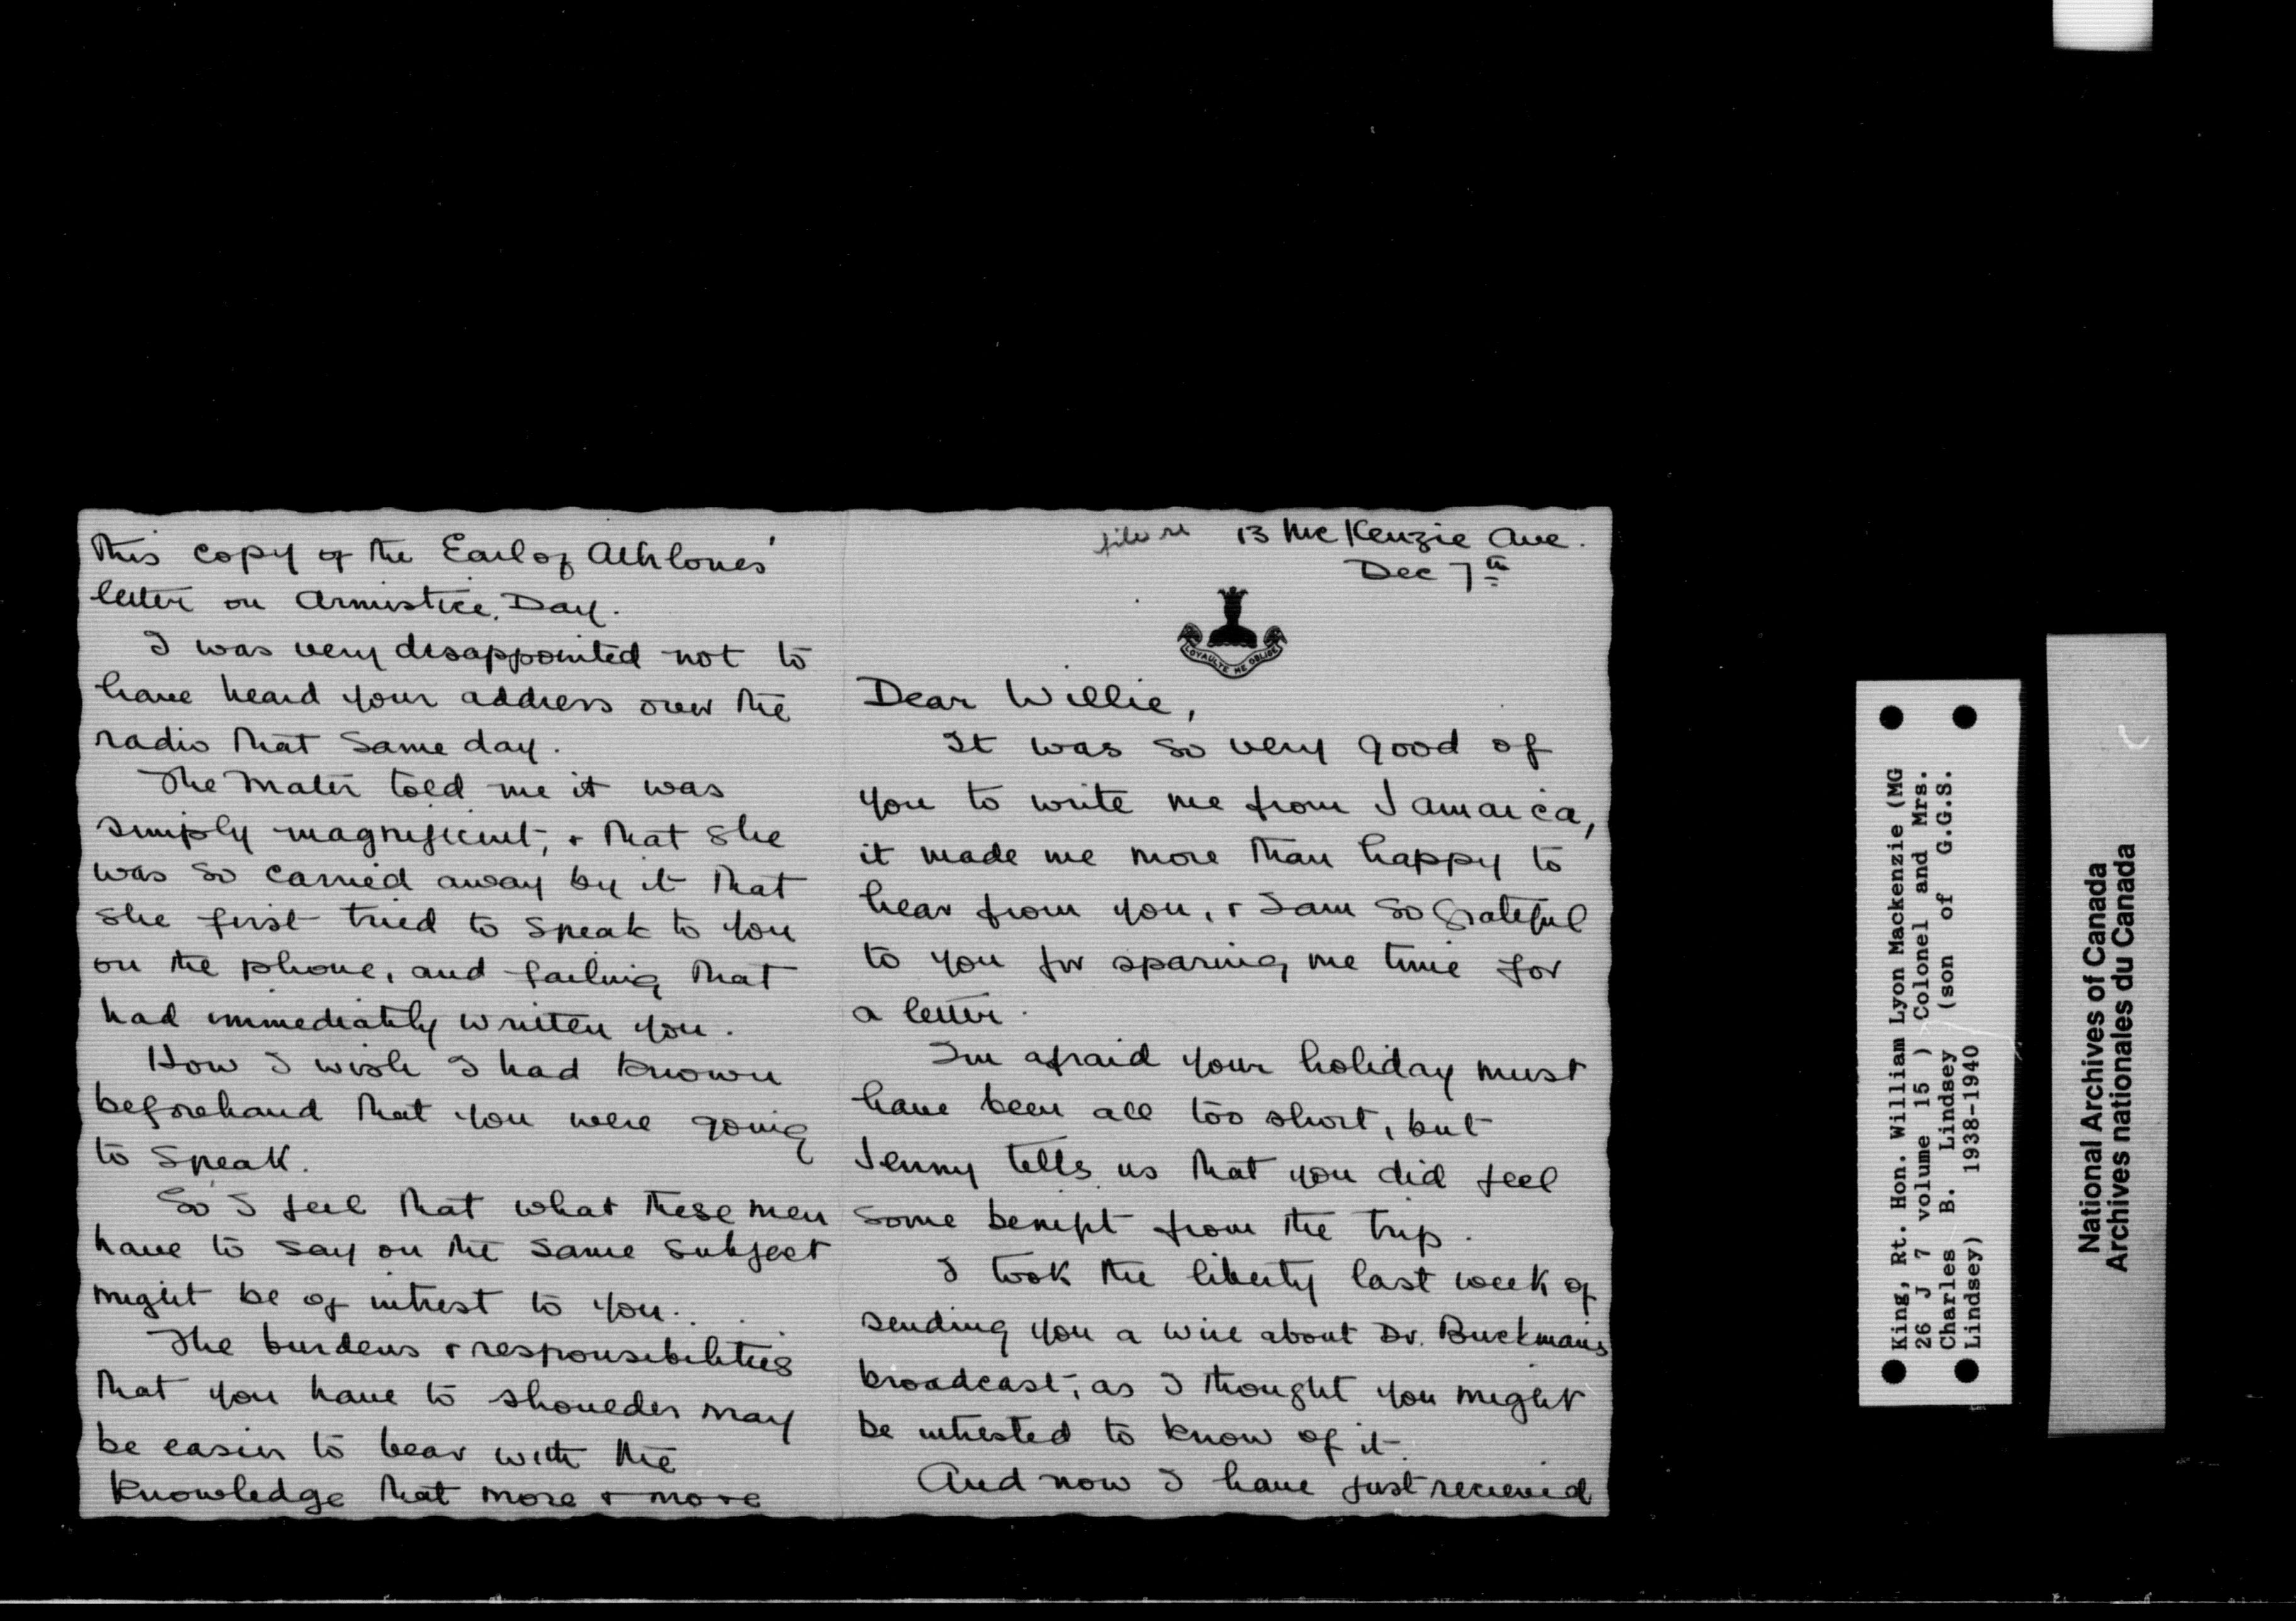 13 McKenzie Ave.
Dec 7th
LOYAULTE ME OBLIGE
Dear Willie,
It was so very good of
you to write me from Jamaica,
it made me more than happy to
hear from you, & I am so grateful
to you for sparing me time for
a letter.
I'm afraid your holiday must
have been all too short, but
Jenny tells us that you did feel
some benifit from the trip.
I took the liberty last week of
sending you a wire about Dr. Buckman's
broadcast, as I thought you might
be intrested to know of it.
And now I have just recieved
this copy of the Earl of Athlones'
letter on Armistice Day.
I was very disappointed not to
have heard your address over the
radio that same day.
The Mater told me it was
simply magnificent, & that she
was so carried away by it that
she first tried to speak to you
on the phone, and failing that
had immediately written you.
How I wish I had known
beforehand that you were going
to speak.
So I feel that what these men
have to say on the same subject
might be of intrest to you.
The burdens & responsibilities
that you have to shoulder may
be easier to bear with the
knowledge that more & more
King, Rt. Hon. William Lyon Mackenzie (MG
26 J 7 volume 15 ) Colonel and Mrs.
Charles B. Lindsey (son of G.G.S.
Lindsey) 1938-1940
National Archives of Canada
Archives nationales du Canada